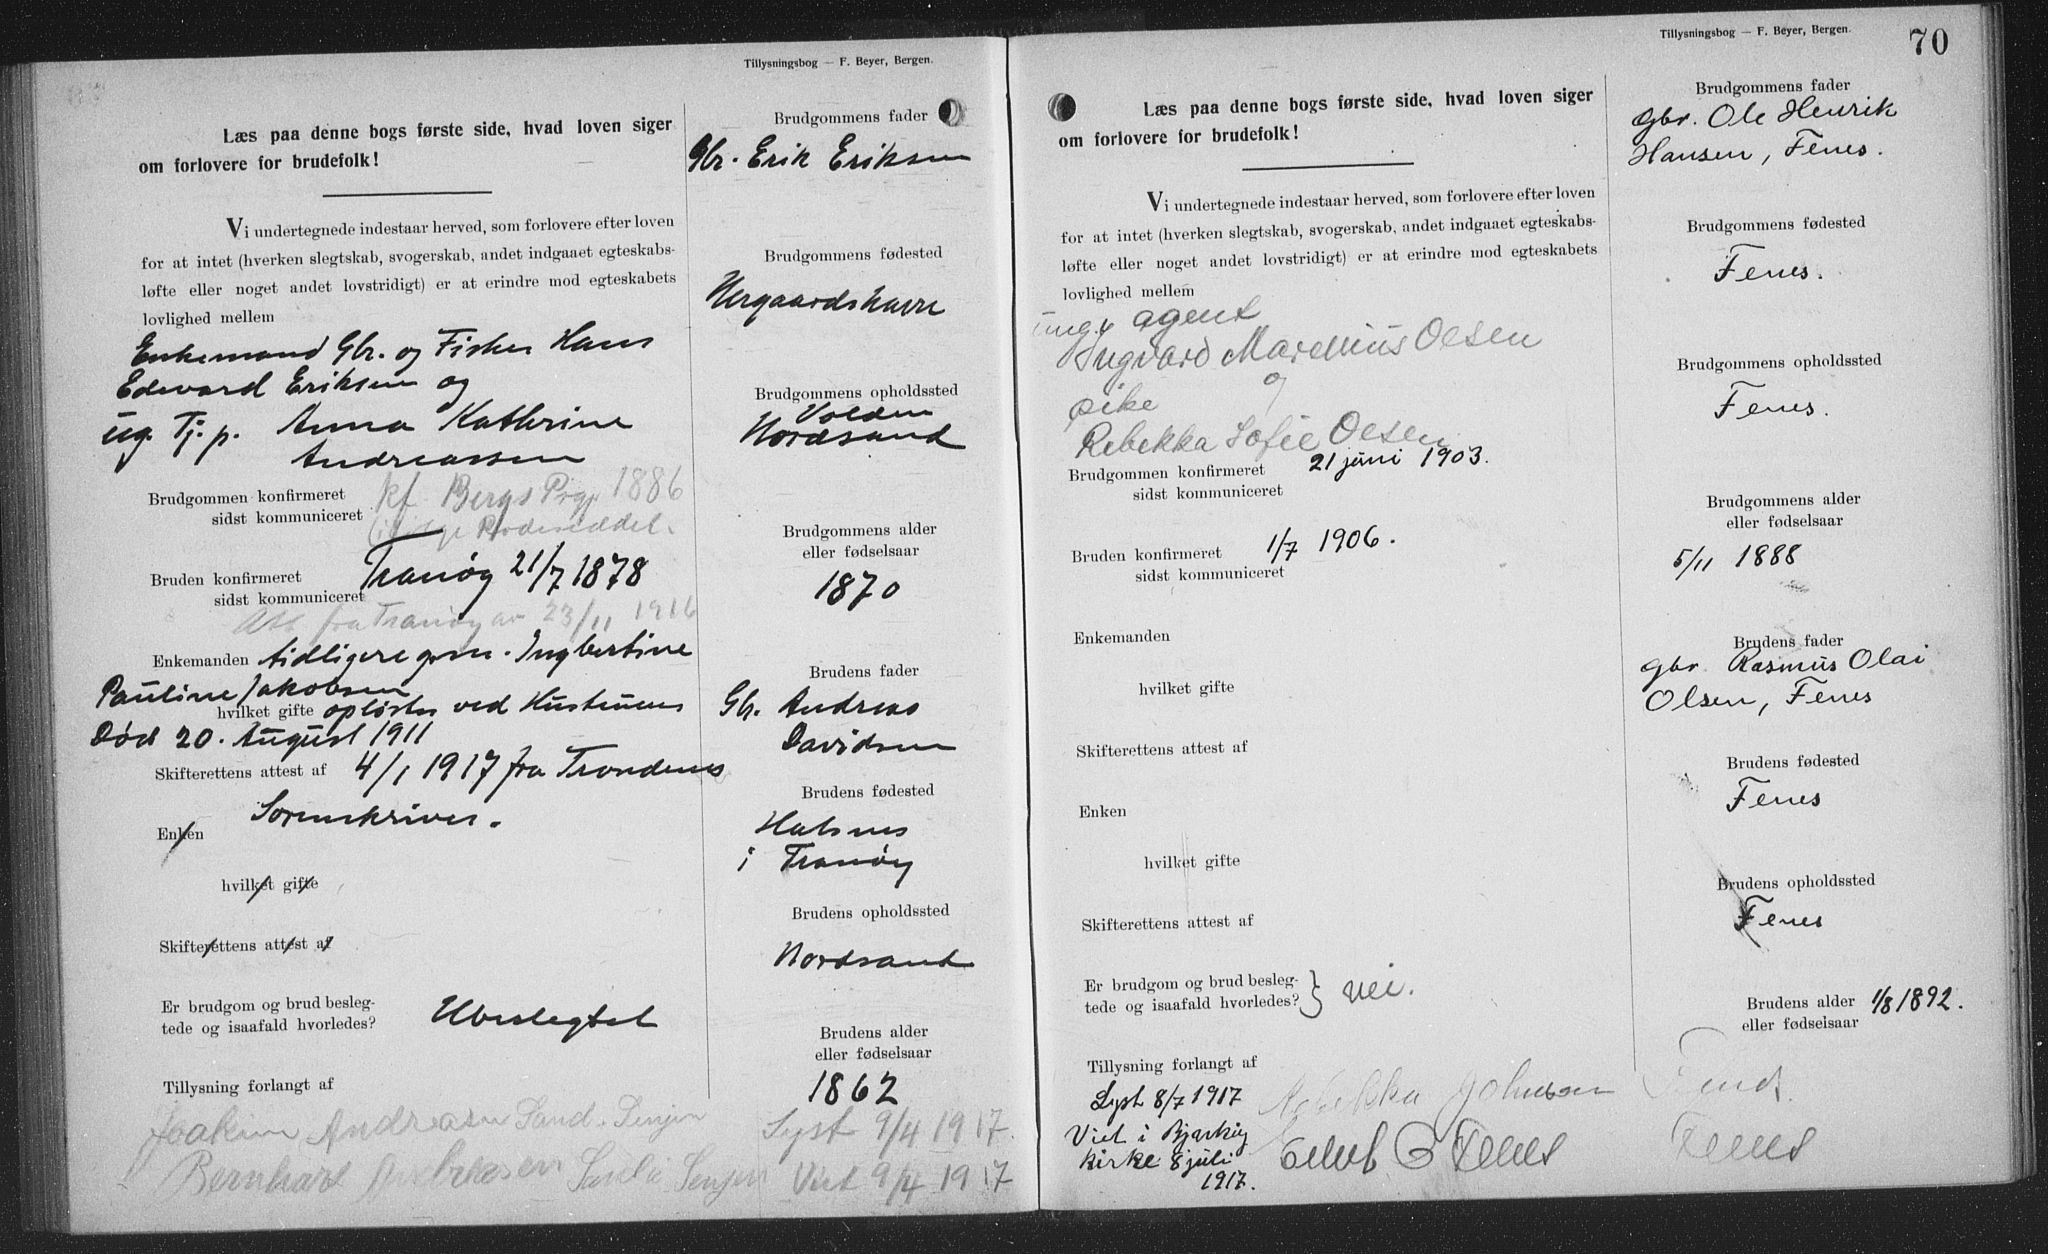 Tillysningsbog — F. Beyer, Bergen.
Læs paa denne bogs første side, hvad loven siger
om forlovere for brudefolk!
Vi undertegnede indestaar herved, som forlovere efter loven
for at intet (hverken slegtskab, svogerskab, andet indgaaet egteskabs-
løfte eller noget andet lovstridigt) er at erindre mod egteskabets
lovlighed mellem
Enkemand Gbr. og Fisker Hans
Edvard Eriksen og
ug. Tj. p. Anna Kathrine
Andreassen
Brudgommen konfirmeret kf Bergs Prgj 1886
sidst kommuniceret
Bruden konfirmeret Tranøy 21/7 1878
sidst kommuniceret
Att. fra Tranøy av 23/11 1916
Enkemanden tidligere gm. Ingbertine
Pauline Jakobsen
hvilket gifte opløstes ved Hustruens
Død 20. August 1911
Skifterettens attest af 4/1 1917 fra Trondenes
Sorenskriver.
Enken
hvilket gifte
Skifterettens attest af
Er brudgom og brud besleg-
tede og isaafald hvorledes? Ubeslegtet
Tillysning forlangt af
Joakim Andreasen Sand. Senjen
Bernhart Andreasen Senjen
Brudgommens fader
Gbr. Erik Eriksen
Brudgommens fødested
Brudgommens opholdssted
Volden
Nordsand
Brudgommens alder
eller fødselsaar
1870
Brudens fader
Gbr. Andreas
Davidsen
Brudens fødested
Halsnes
i Tranøy
Brudens opholdssted
Nordsand
Brudens alder
eller fødselsaar
1862
Lyst 9/4 1917.
Viet 9/4 1917
Tillysningsbog — F. Beyer, Bergen.
70
Læs paa denne bogs første side, hvad loven siger
om forlovere for brudefolk!
Vi undertegnede indestaar herved, som forlovere efter loven
for at intet (hverken slegtskab, svogerskab, andet indgaaet egteskabs-
løfte eller noget andet lovstridigt) er at erindre mod egteskabets
lovlighed mellem
agent
Ingvard Marenius Olsen
og
pike
Rebekka Sofie Olsen
Brudgommen konfirmeret 21 juni 1903.
sidst kommuniceret
Bruden konfirmeret 1/7 1906.
sidst kommuniceret
Enkemanden
hvilket gifte
Skifterettens attest af
Enken
hvilket gifte
Skifterettens attest af
Er brudgom og brud besleg-
tede og isaafald hvorledes? } nei.
Tillysning forlangt af
Lyst 8/7 1917
Viet i Bjarkøy
kirke 8 juli
1917.
Rebekka Johnsen
Fenes
Brudgommens fader
gbr. Ole Henrik
Hansen, Fenes.
Brudgommens fødested
Fenes.
Brudgommens opholdssted
Fenes.
Brudgommens alder
eller fødselsaar
5/11 1888
Brudens fader
gbr Rasmus Olai
Olsen, Fenes
Brudens fødested
Fenes
Brudens opholdssted
Fenes
Brudens alder 1/8 1892.
eller fødselsaar
Fenes